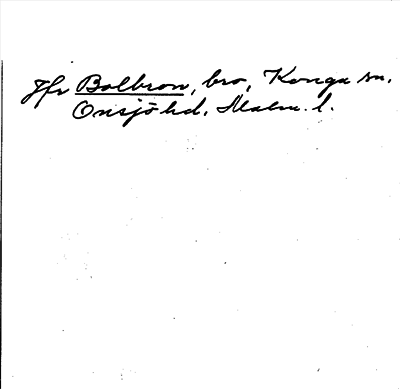 Jfr Bolbron, bro, Konga sn.
Onsjö hd. Malm. l.